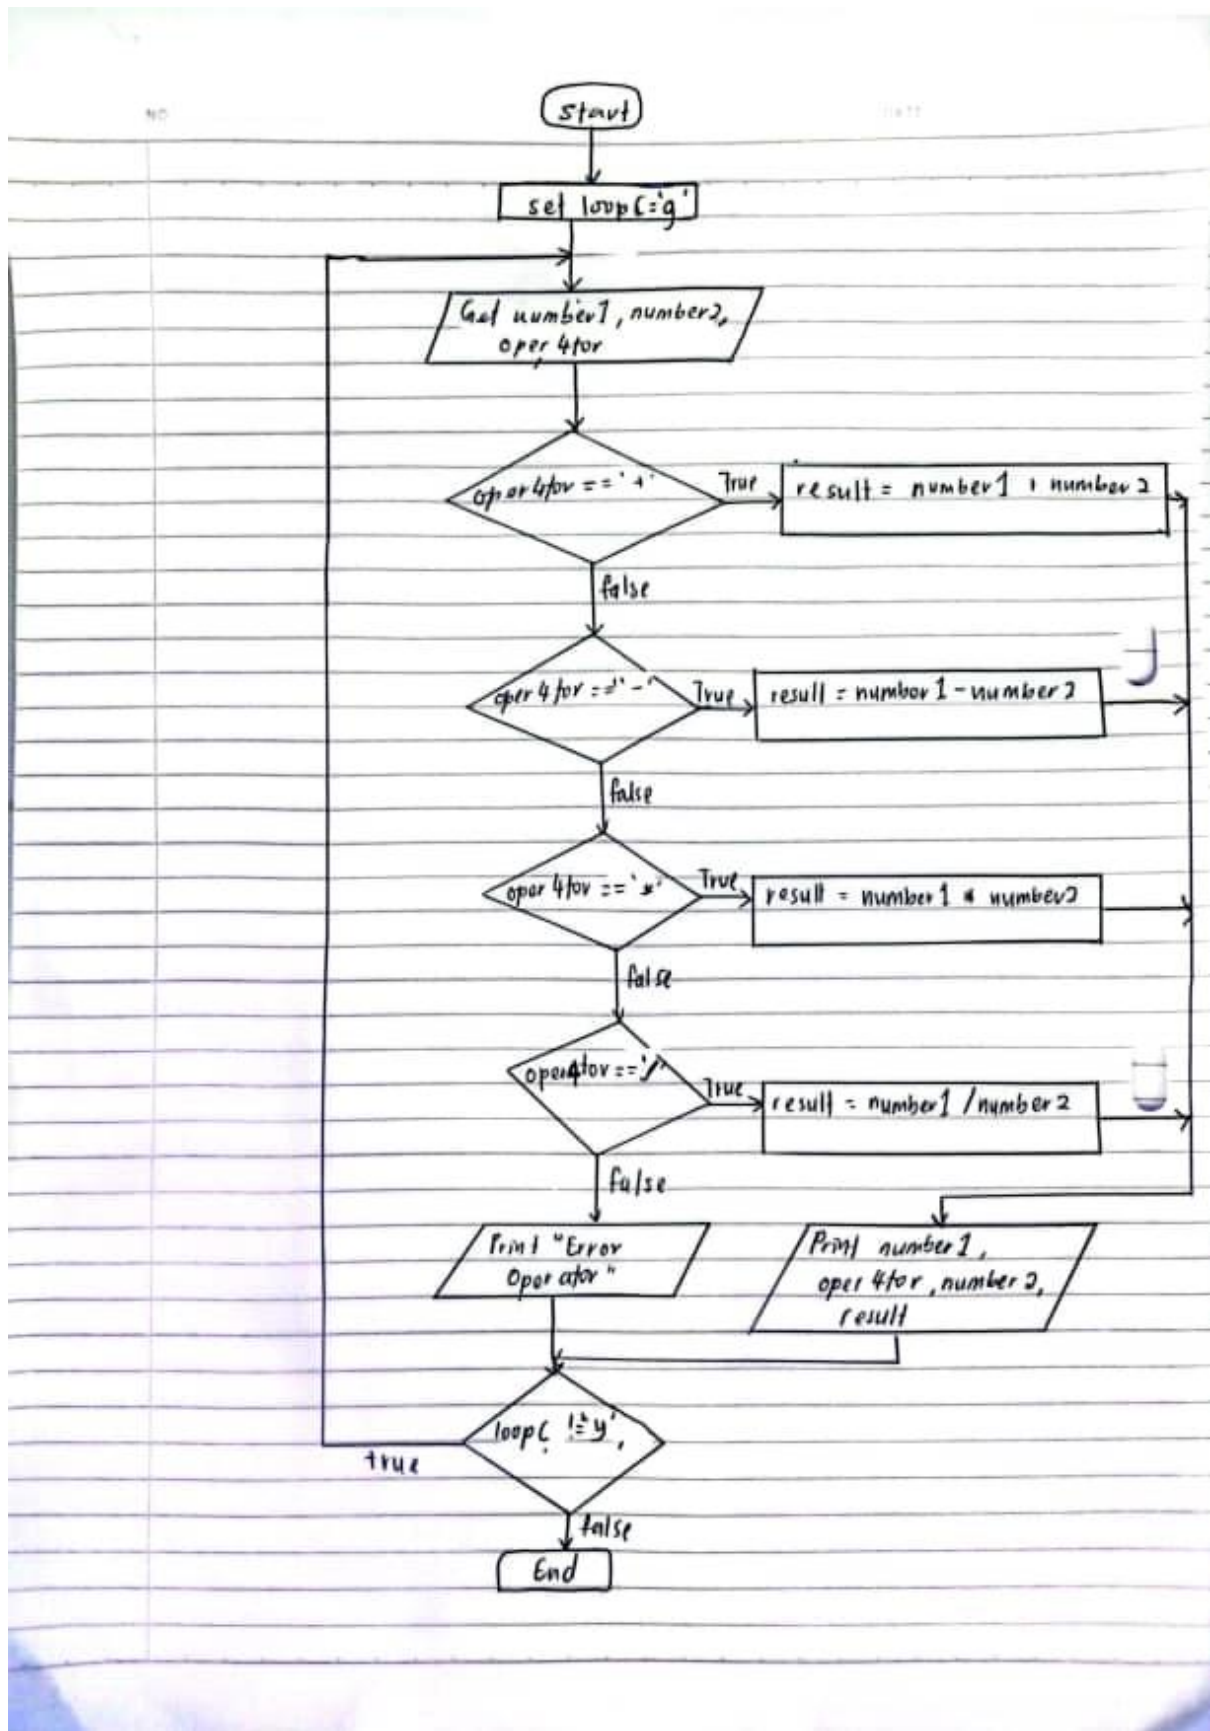 NO
Start
set loopC='g'
Get number1, number2,
oper4tor
oper4tor == '+'
True
result = number1 + number2
false
oper4tor == '-'
True
result = number1 - number2
false
oper4tor == '*'
True
result = number1 * number2
false
oper4tor == '/'
True
result = number1 / number2
false
Print "Error
Operator"
Print number1,
oper4tor, number2,
result
loopC != 'y'
true
false
End